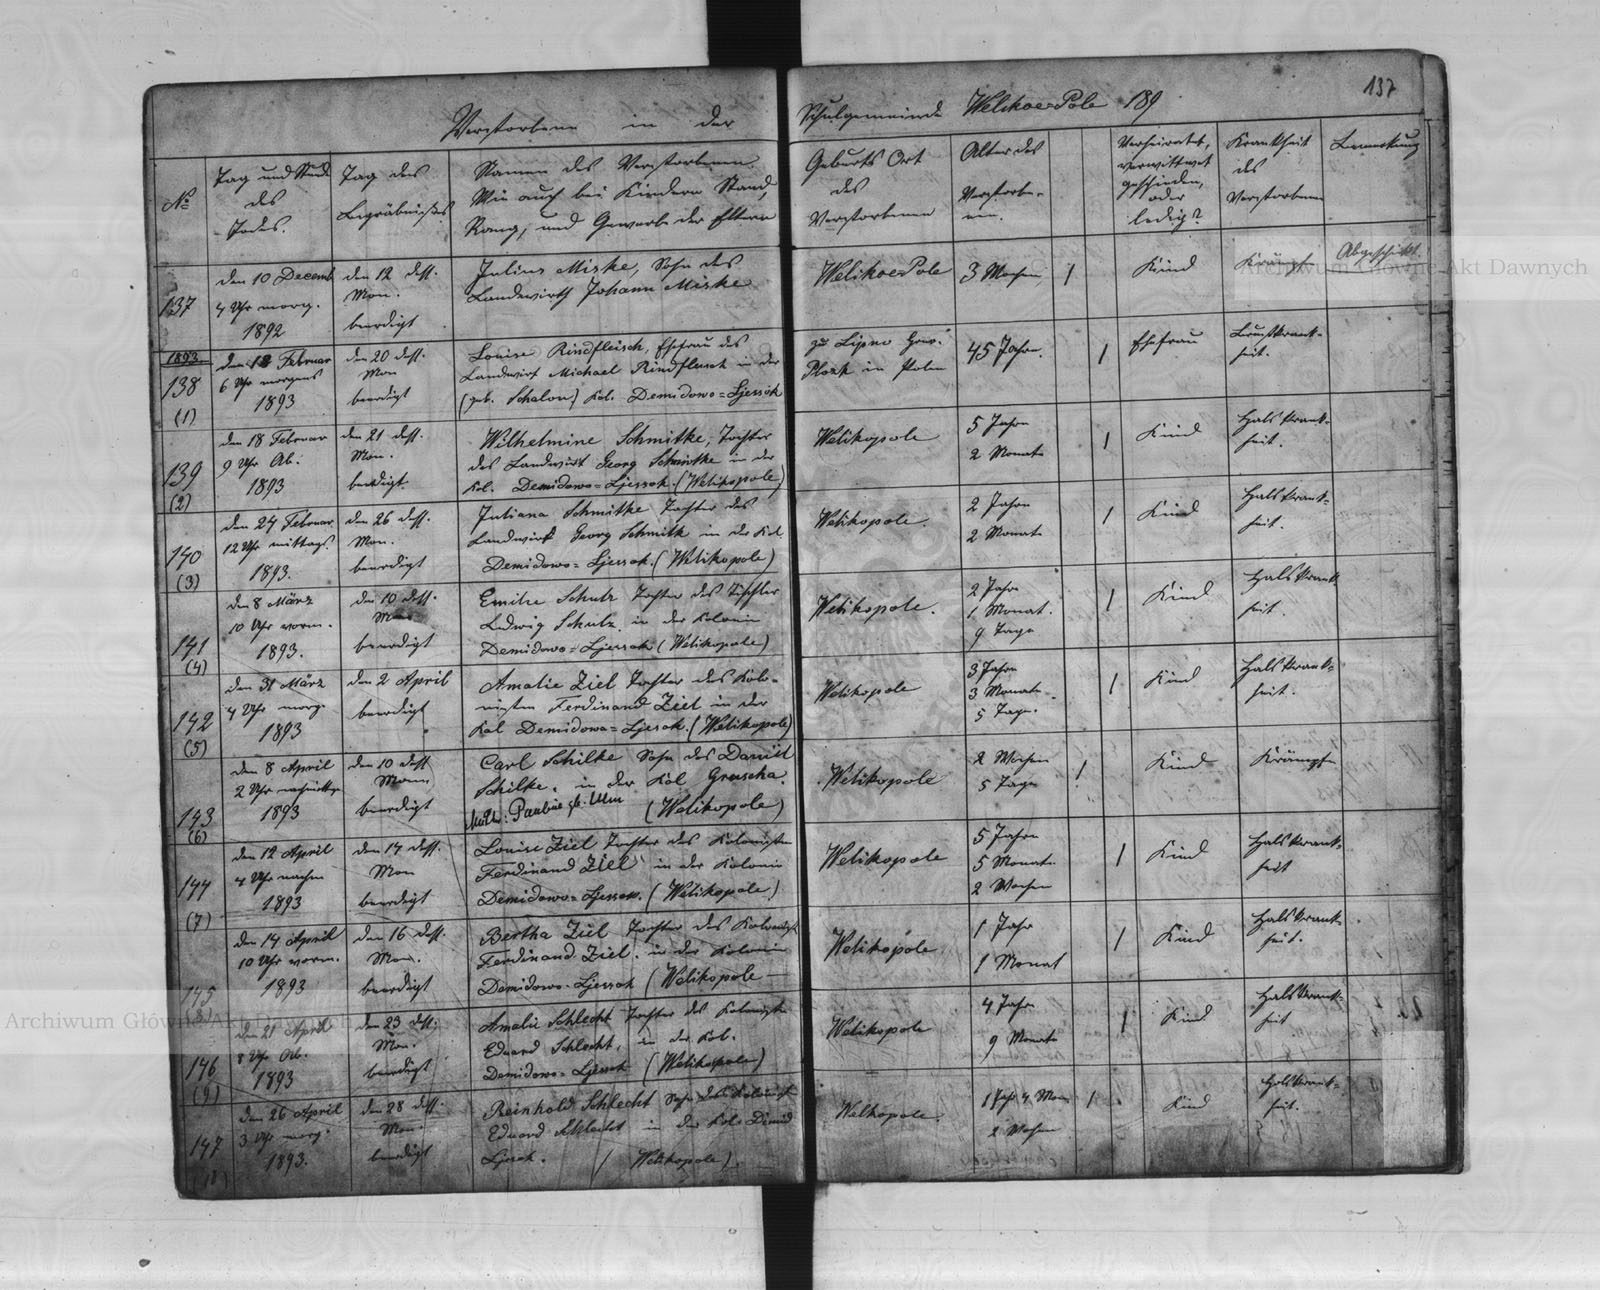 137
Verstorbene in der Schulgemeinde Welikoe-Pole 189
№
Tag und Stunde
des
Todes.
Tag des
Begräbnißes
Namen des Verstorbenen
Wie auch bei Kindern Stand,
Rang, und Gewerbe der Eltern
Geburts Ort
des
Verstorbenen
Alter des
Verstorbe-
nen.
Verheiratet,
verwittwet
geschieden,
oder
ledig?
Krankheit
des
Verstorbenen
Bemerkung
137
den 10 Decemb
4 Uhr morg.
1892
den 12 dess.
Mon.
beerdigt
Julius Miske, Sohn des
Landwirth Johann Miske
Welikoe Pole
3 Wochen
1
Kind
Krämpfe
Abgeschikt.
1893
138
(1)
den 18 Februar
6 Uhr morgens
1893
den 20 dess.
Mon
beerdigt
Louise Rindfleisch, Ehefrau des
Landwirt Michael Rindfleisch in der
(geb. Schalon) Kol. Demidowo=Ljessok
zu Lipno Gouv.
Plozk in Polen
45 Jahre.
1
Ehefrau
Brustkrank=
heit.
139
(2)
den 18 Februar
9 Uhr Ab.
1893
den 21 dess.
Mon.
beerdigt.
Wilhelmine Schmitke, Tochter
des Landwirt Georg Schmitke in der
Kol. Demidowo=Ljessok. (Welikopole)
Welikopole
5 Jahre
2 Monate
1
Kind
Halskrank=
heit.
140
(3)
den 24 Februar
12 Uhr mittags.
1893.
den 26 dess.
Mon.
beerdigt
Juliana Schmitke Tochter des
Landwirt Georg Schmitk in der Kol
Demidowo=Ljessok. (Welikopole)
Welikopole.
2 Jahre
2 Monate
1
Kind
Halskrank=
heit.
141
(4)
den 8 März
10 Uhr vorm.
1893.
den 10 dess.
Mon
beerdigt
Emilie Schulz Tochter des Tischler
Ludwig Schulz. in der Kolonie
Demidowo=Ljessok (Welikopole)
Welikopole.
2 Jahre
1 Monat.
9 Tage
1
Kind
Halskrank
heit.
142
(5)
den 31 März
4 Uhr morg.
1893
den 2 April
beerdigt
Amalie Ziel Tochter des Kolo=
nisten Ferdinand Ziel in der
Kol Demidowo=Ljesok. (Welikopole)
Welikopole
3 Jahre
3 Monate
5 Tage.
1
Kind
Halskrank=
heit.
143
(6)
den 8 April
2 Uhr nachmittg.
1893
den 10 dess
Mon
beerdigt
Carl Schilke Sohn des Daniel
Schilke. in der Kol Gruscha.
Mutter: Pauline geb. Ulm (Welikopole)
Welikopole
2 Wochen
5 Tage
1
Kind
Krämpfe
144
(7)
den 12 April
4 Uhr nachm
1893
den 14 dess.
Mon
beerdigt
Louise Ziel Tochter des Kolonisten
Ferdinand Ziel in der Kolonie
Demidowo=Ljessok. (Welikopole)
Welikopole
5 Jahre
5 Monate
2 Wochen
1
Kind
Halskrank=
heit
145
(8)
den 14 April
10 Uhr vorm.
1893
den 16 dess.
Mon.
beerdigt
Bertha Ziel Tochter des Kolonist
Ferdinand Ziel. in der Kolonie
Demidowo-Ljessok (Welikopole
Welikopole
1 Jahr
1 Monat
1
Kind
Halskrank=
heit.
146
(9)
den 21 April
8 Uhr Ab.
1893
den 23 dess.
Mon.
beerdigt
Amalie Schlecht Tochter des Kolonisten
Eduard Schlecht, in der Kol.
Demidowo=Ljessok (Welikopole)
Welikopole
4 Jahre
9 Monate
1
Kind
Halskrank=
heit
147
(10)
den 26 April
3 Uhr morg.
1893.
den 28 dess.
Mon.
beerdigt
Reinhold Schlecht Sohn des Kolonist
Eduard Schlecht in der Kol. Demid
Ljesok. (Welikopole).
Welkopole
1 Jahr 4 Mon
2 Wochen
1
Kind
Halskrank=
heit.
Archiwum Główne Akt Dawnych
Archiwum Główne Akt Dawnych